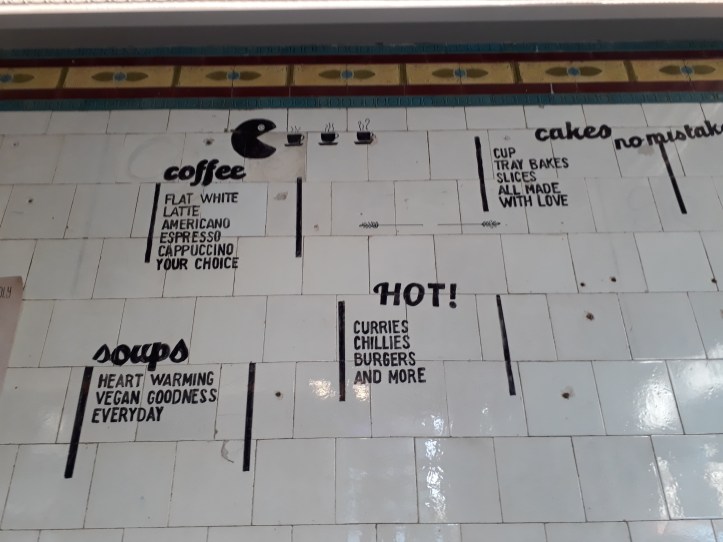 coffee
FLAT WHITE
LATTE
AMERICANO
ESPRESSO
CAPPUCCINO
YOUR CHOICE
cakes
CUP
TRAY BAKES
SLICES
ALL MADE
WITH LOVE
no mistake
HOT!
CURRIES
CHILLIES
BURGERS
AND MORE
soups
HEART WARMING
VEGAN GOODNESS
EVERYDAY